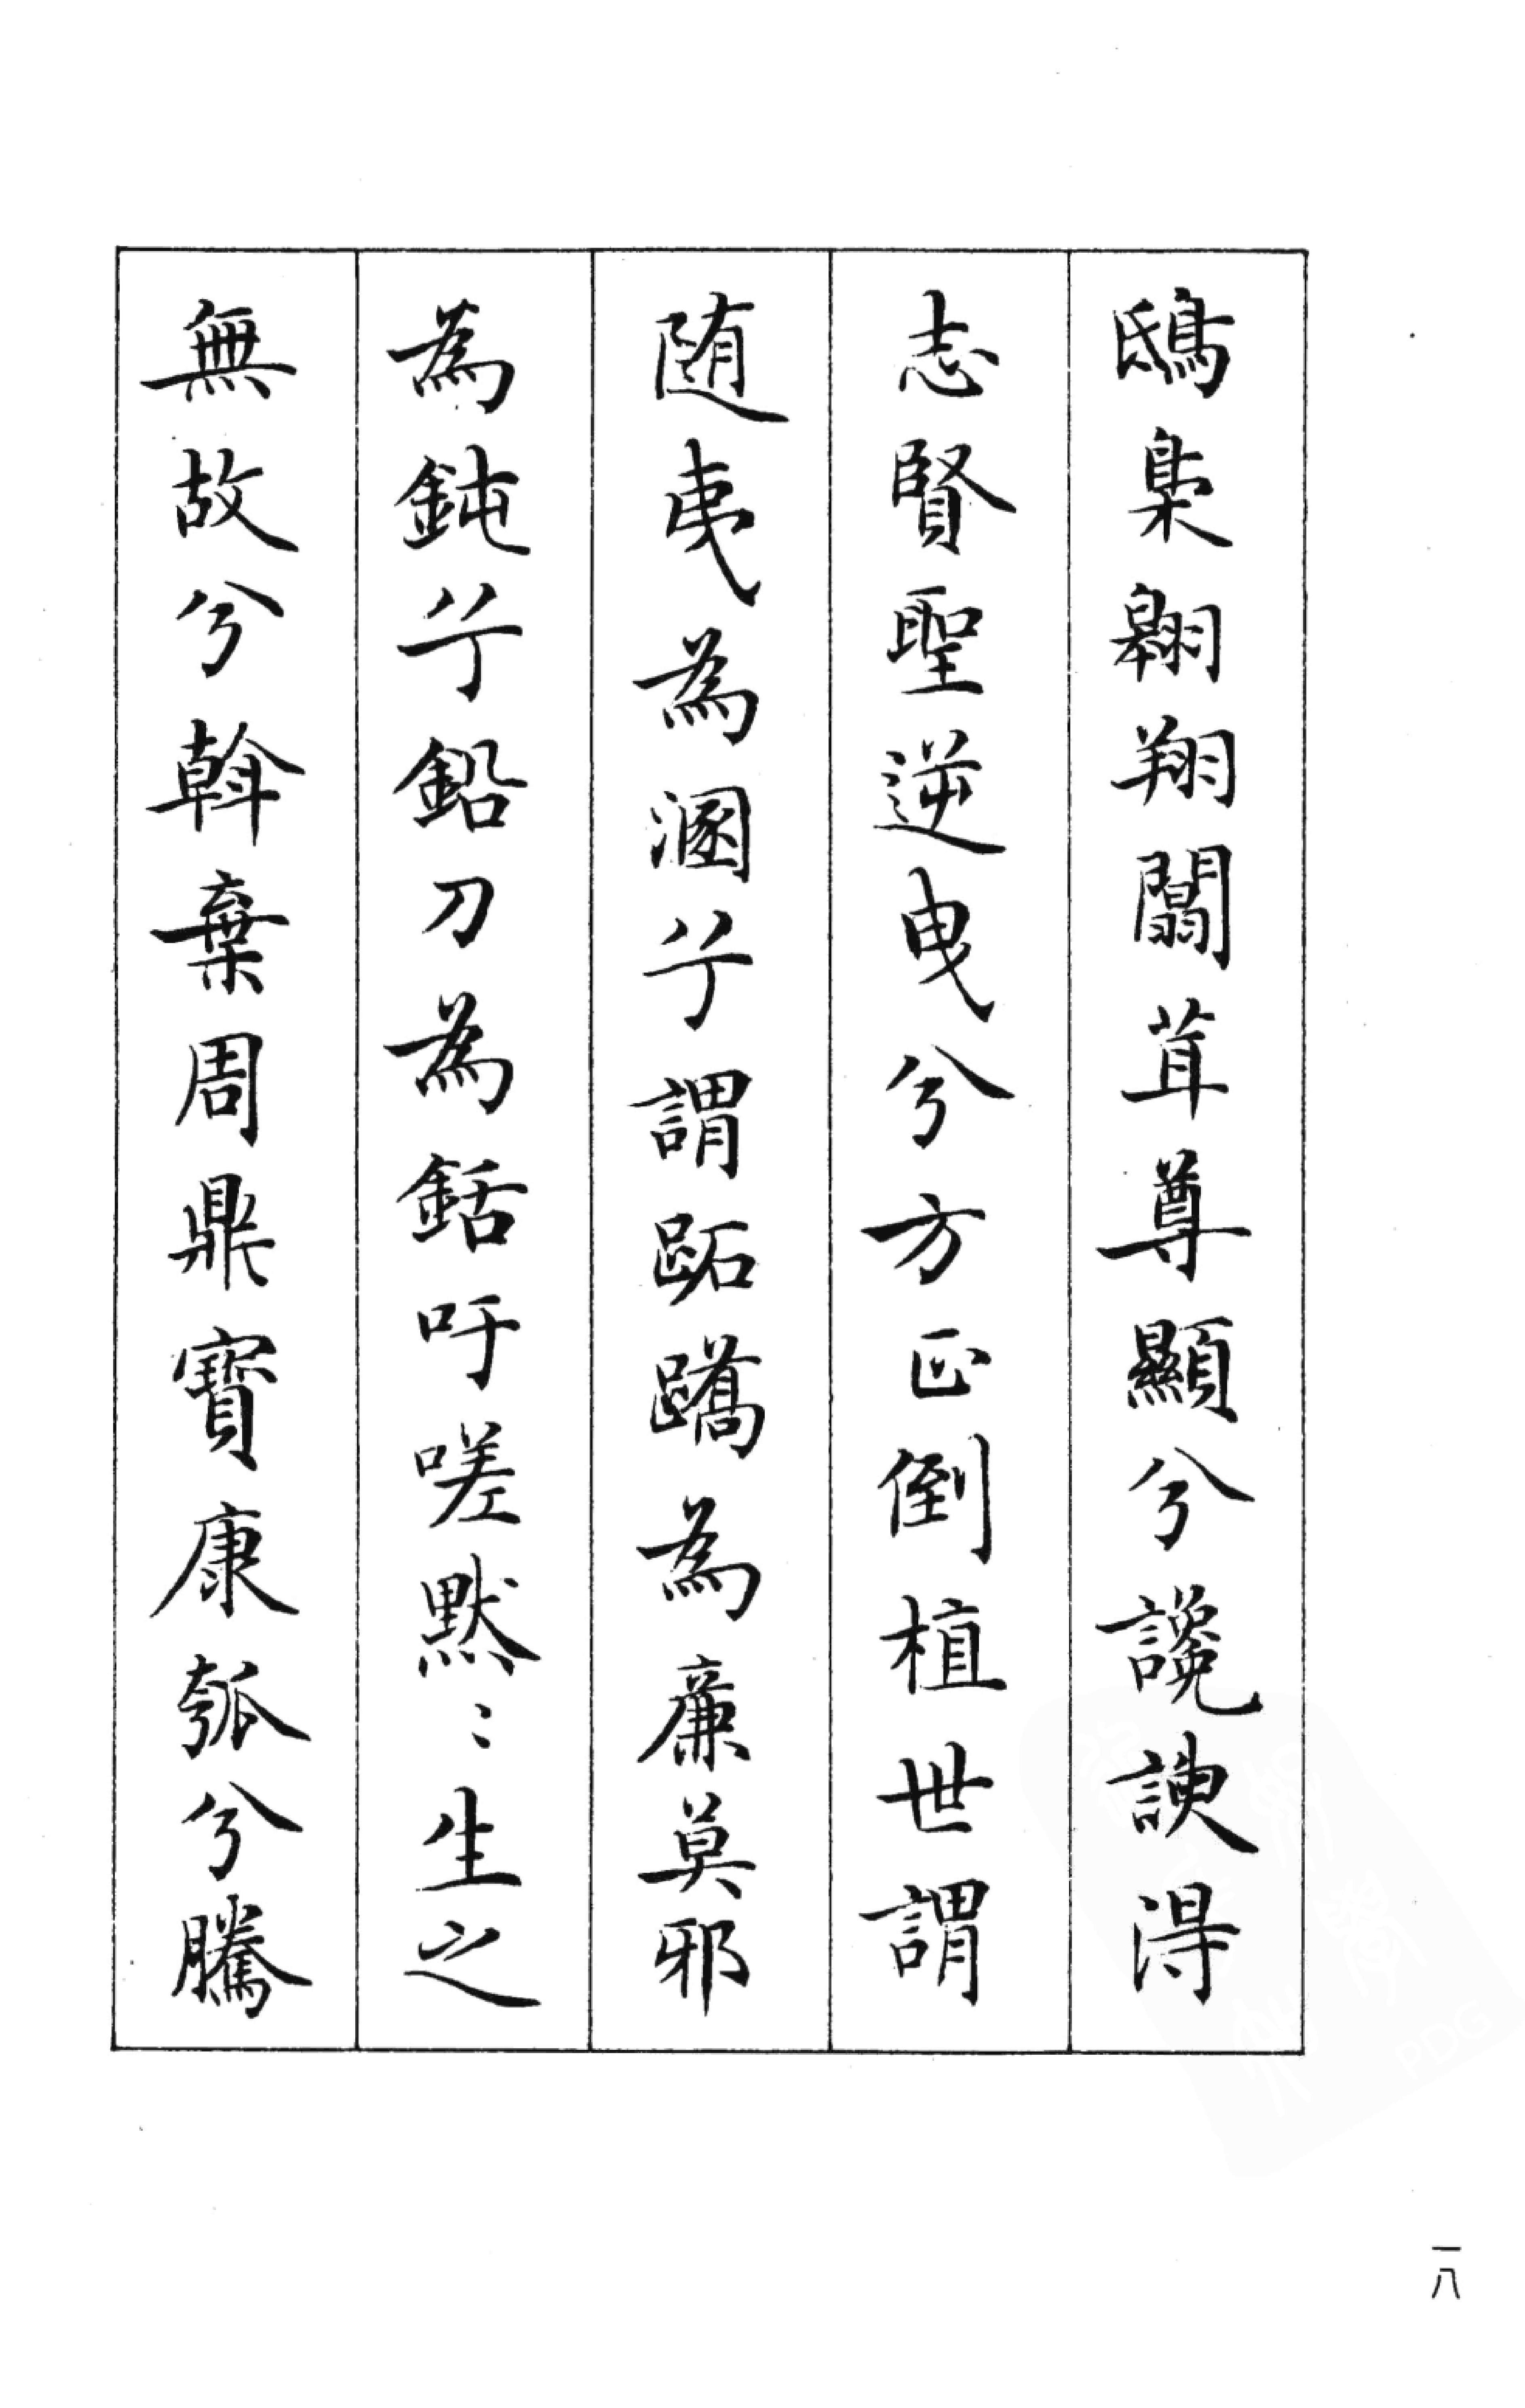 鴟梟翱翔闒茸尊顯兮讒諛得
志賢聖逆曳兮方正倒植世謂
随夷為溷兮謂跖蹻為廉莫邪
為鈍兮鉛刀為銛吁嗟黙〻生之
無故兮斡棄周鼎寶康瓠兮騰
一八